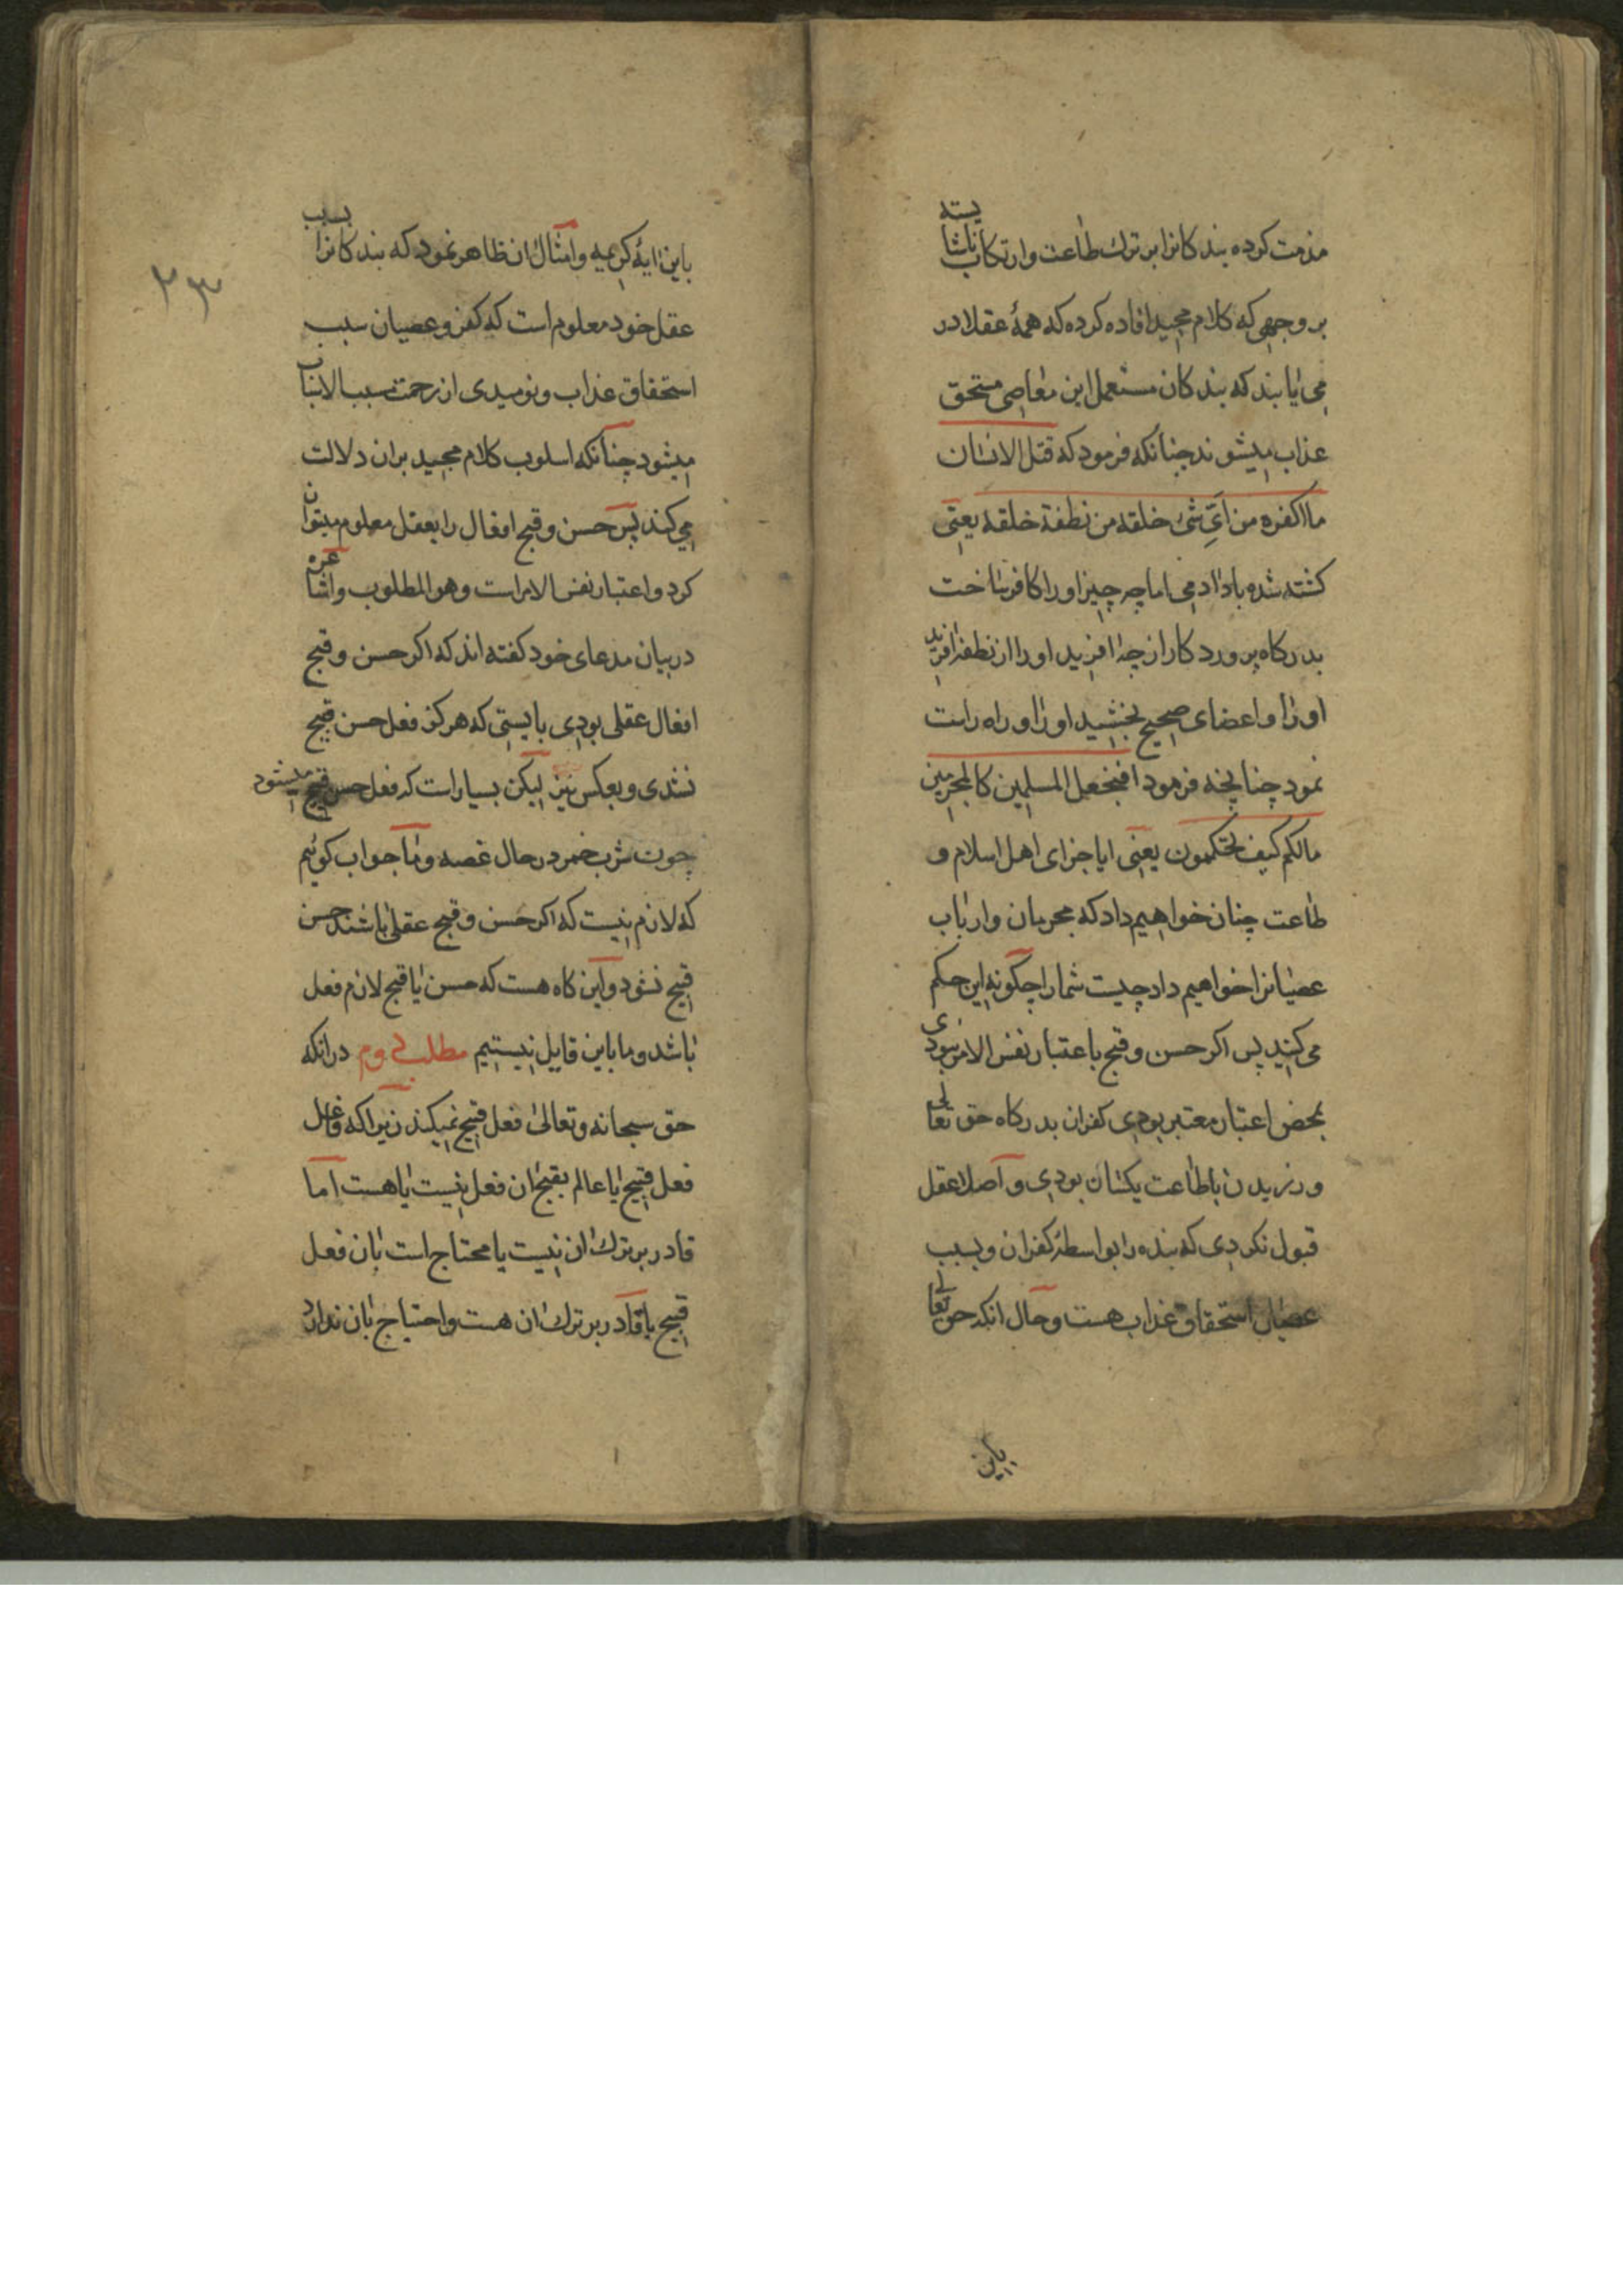 مذمت کرده بندکانرا بر ترك طاعت وارتکاب ناشایسته
بر وجهی که کلام مجید افاده کرده که همهٔ عقلا در
می یابند که بندکان مستعمل این معاصی مستحق
عذاب میشوند چنانکه فرمود که قتل الانسان
ما اکفره من ایّ شیٔ خلقه من نطفة خلقه یعنی
کشته شده باد ادمی اما چه چیز اورا کافر ساخت
بدرکاه پروردکار از چه افرید اورا از نطفه افرید
اورا و اعضای صحیح بخشید اورا و راه راست
نمود چنانچه فرمود افنجعل المسلمین کالمجرمین
مالکم کیف تحکمون یعنی ایا جزای اهل اسلام و
طاعت چنان خواهیم داد که مجرمان وارباب
عصیانرا خواهیم داد چیست شمارا چکونه این حکم
می کنید پس اکر حسن و قبح باعتبار نفس الامر نبودی
بمحض اعتبار معتبر بودی کفران بدرکاه حق تعالی
ورزیدن باطاعت یکسان بودی و اصلا عقل
قبول نکردی که بنده را بواسطهٔ کفران و بسبب
عصیان استحقاق عذاب هست وحال انکه حق تعالی
باین
۲۳
باین ایهٔ کریمه وامثال ان ظاهر نمود که بندکانرا بسبب
عقل خود معلوم است که کفر و عصیان سبب
استحقاق عذاب و نومیدی از رحمت مسبب الاسباب
میشود چنانکه اسلوب کلام مجید بران دلالت
می کند پس حسن و قبح افعال را بعقل معلوم میتوان
کرد و اعتبار نفس الامر است وهو المطلوب واشاعره
در بیان مدعای خود کفته اند که اکر حسن و قبح
افعال عقلی بودی بایستی که هرکز فعل حسن قبیح
نشدی و بعکس نیز لیکن بسیار است که فعل حسن قبیح میشود
چون شرب خمر در حال غصه وما جواب کوئیم
که لازم نیست که اکر حسن و قبح عقلی باشند حسن
قبیح نشود واین کاه هست که حسن یا قبح لازم فعل
باشد وما باین قایل نیستیم مطلب دوم درانکه
حق سبحانه وتعالی فعل قبیح نمیکند زیراکه فاعل
فعل قبیح یا عالم بقبح ان فعل نیست یا هست اما
قادر بر ترك ان نیست یا محتاج است بان فعل
قبیح یا قادر بر ترك ان هست واحتیاج بان ندارد